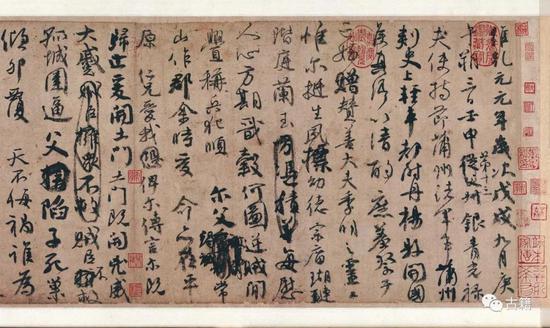 維乾元元年歲次戊戌九月庚
午朔三日壬申第十三叔銀青光祿
夫使持節蒲州諸軍事蒲州
刺史上輕車都尉丹楊縣開國
侯真卿以清酌庶羞祭于
亡姪贈贊善大夫季明之靈曰
惟爾挺生夙標幼德宗廟瑚璉
階庭蘭玉方憑積善每慰
人心方期戩穀何圖逆賊閒
釁稱兵犯順爾父竭誠常
山作郡余時受命亦在平
原仁兄愛我俾爾傳言爾既
歸止爰開土門土門既開兇威
大蹙賊臣擁衆不救賊臣不救
孤城圍逼父陷子死巢
傾卵覆天不悔禍誰為
古籍